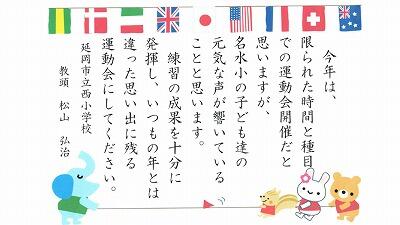 今年は、
限られた時間と種目
での運動会開催だと
思いますが、
名水小の子ども達の
元気な声が響いている
ことと思います。
練習の成果を十分に
発揮し、いつもの年とは
違った思い出に残る
運動会にしてください。
延岡市立西小学校
教頭 松山 弘治